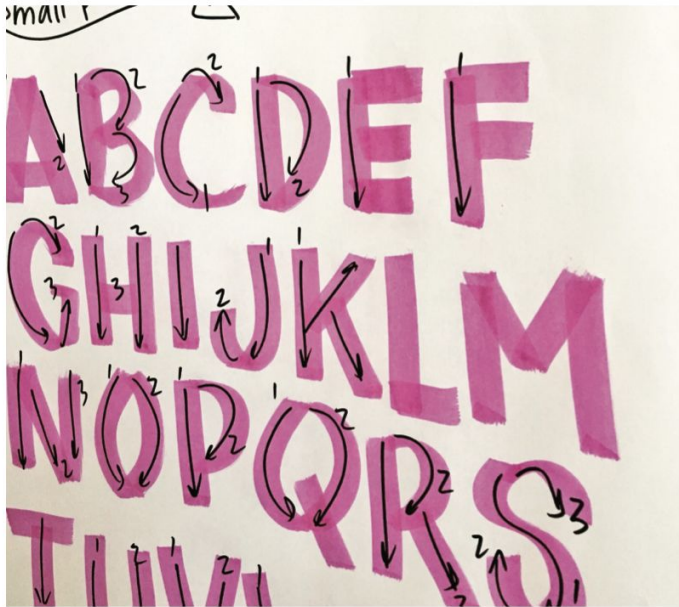 small
ABCDEF
GHIJKLM
NOPQRS
TU